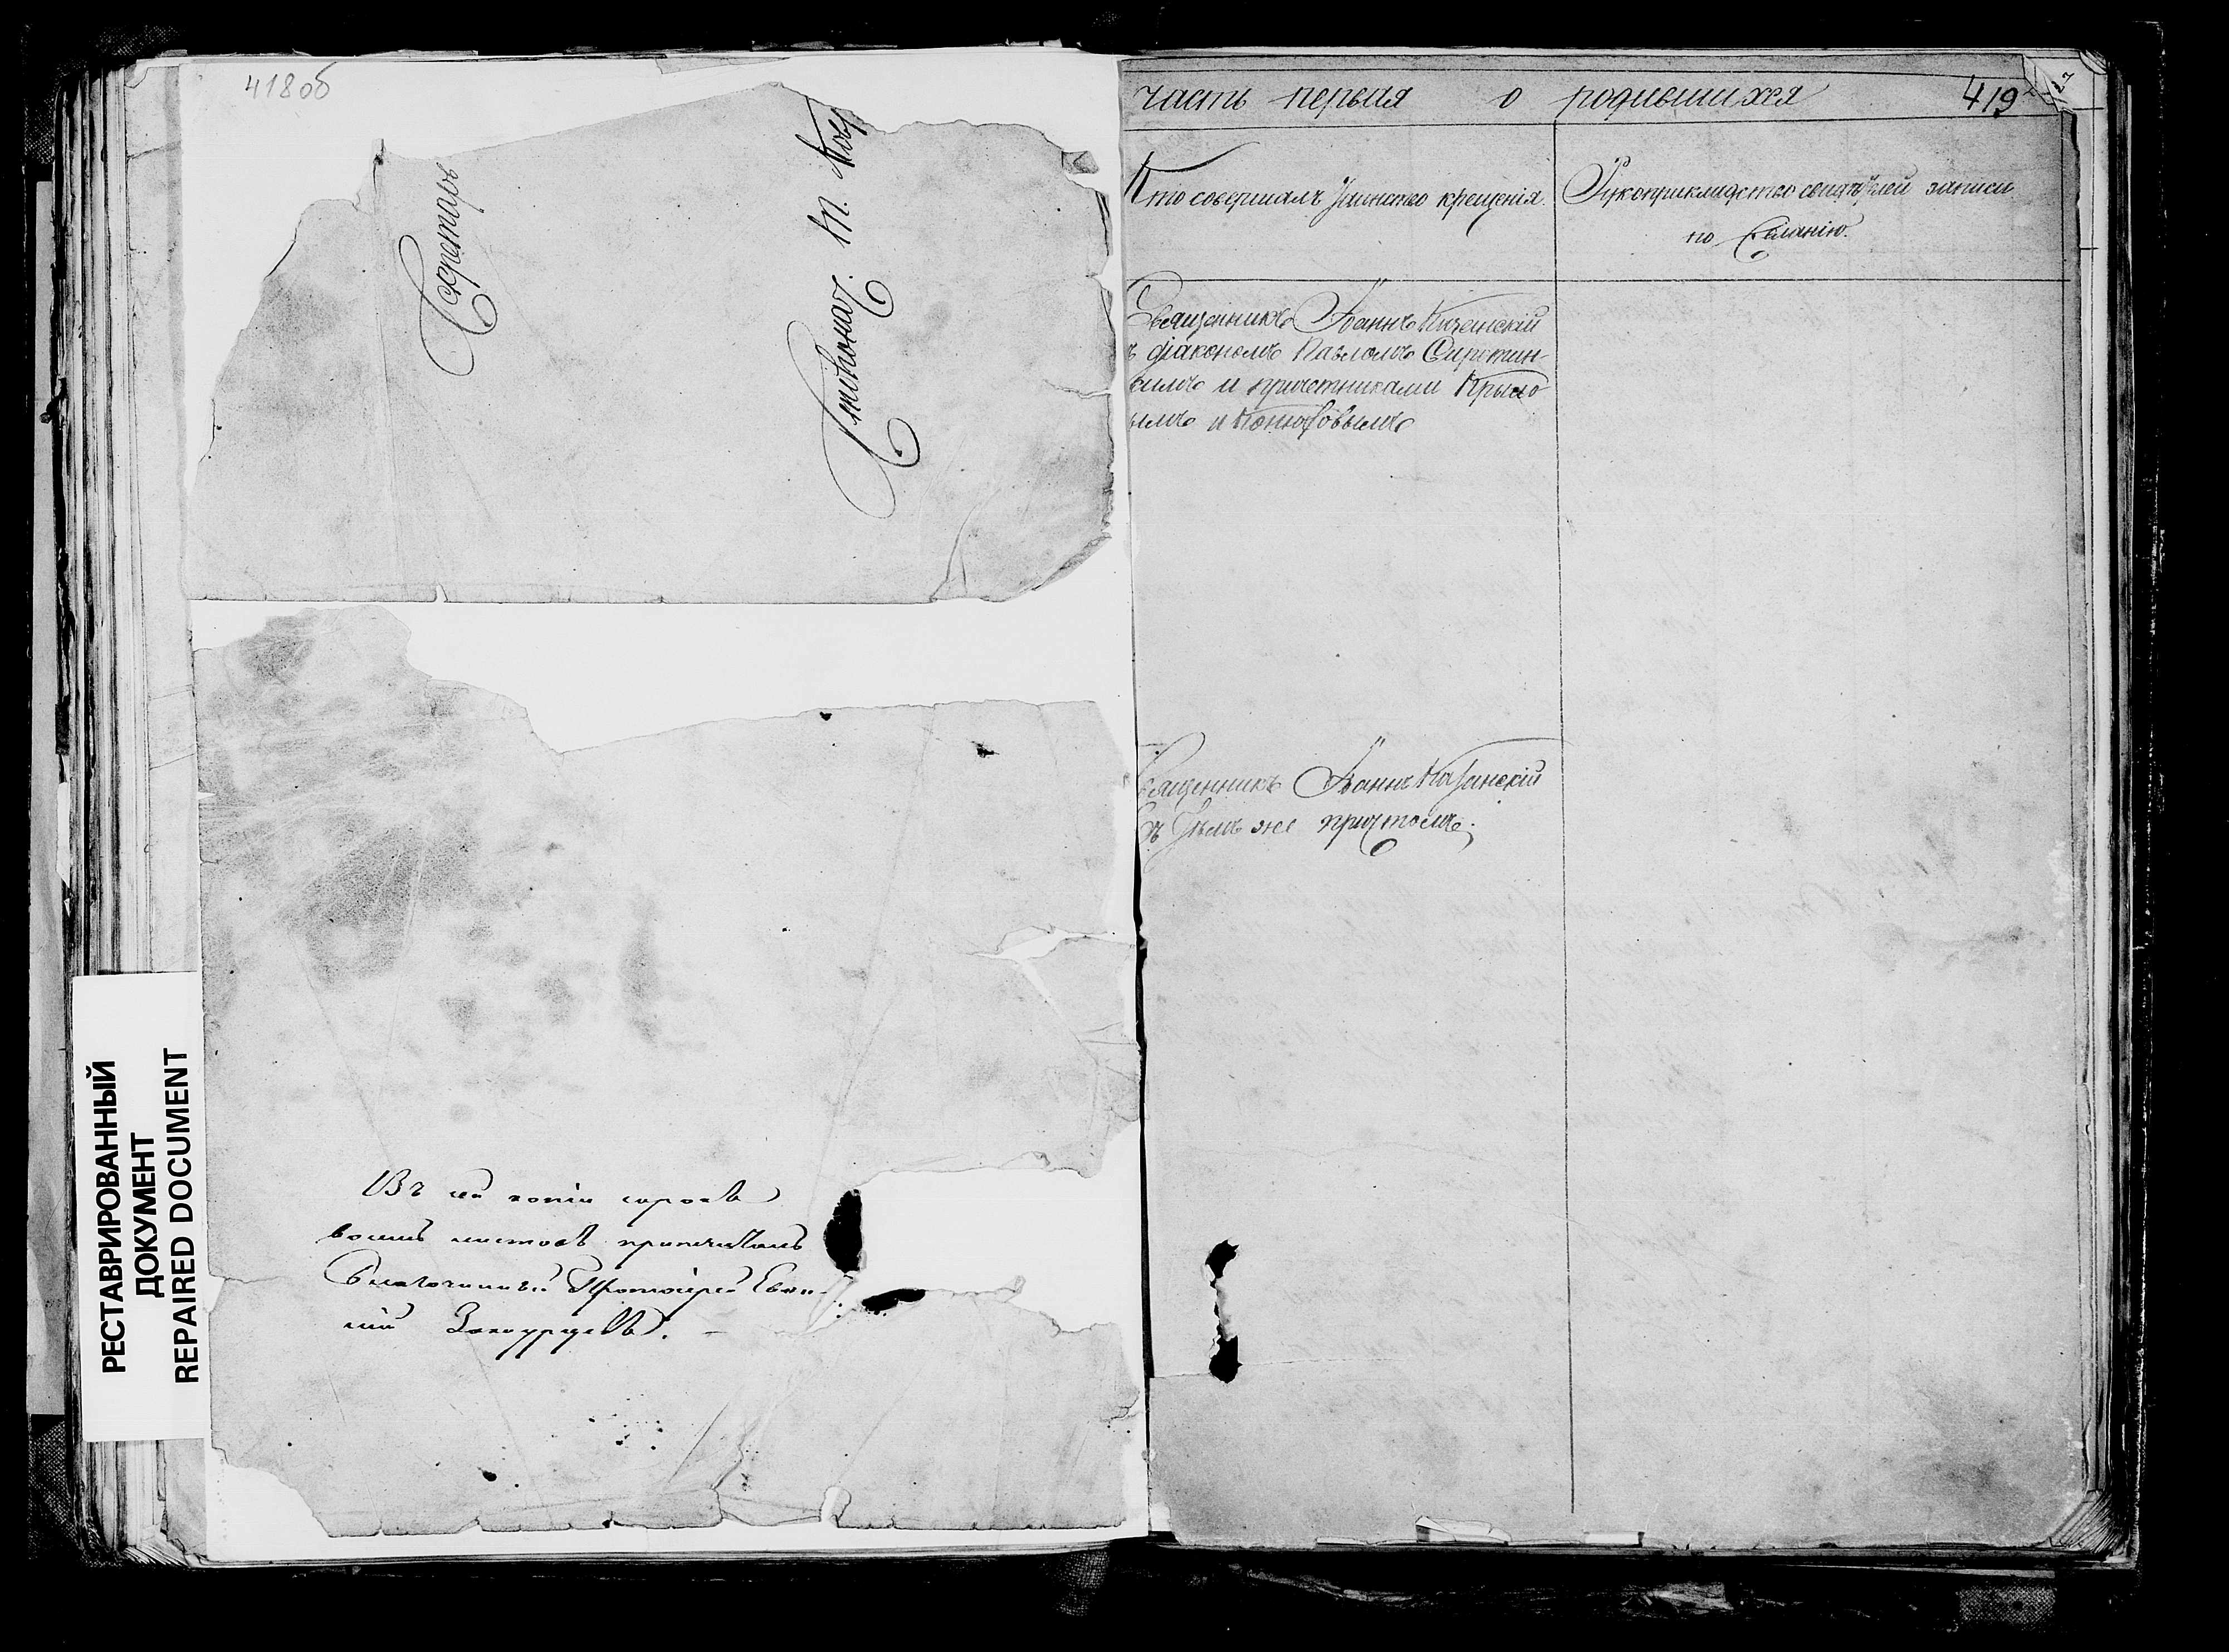 418об
Секретарь
Столоначал. М. Ков
Въ сей копіи сорокъ
восемь листовъ припечаталъ
Благочинный Протоіерей Евѳи-
мій
РЕСТАВРИРОВАННЫЙ
ДОКУМЕНТ
REPAIRED DOCUMENT
часть первая о родившихся 419
Кто совершалъ таинство крещенія.
Рукоприкладство свидѣтелей записи
по желанію.
Священникъ Іоаннъ
ъ діакономъ Павломъ Сиротин-
кимъ и причетниками Крыло
ымъ и
вященникъ Іоаннъ Казанскій
съ тѣмъ же причтомъ.